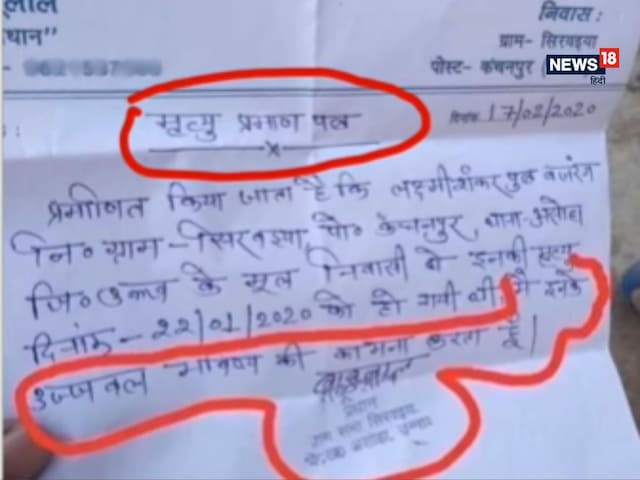 लाल
निवास :
धान"
ग्राम- सिरवइया
पोस्ट- कंचनपुर (
NEWS 18
हिंदी
मृत्यु प्रमाण पत्र
दिनांक 17/02/2020
प्रमाणित किया जाता है कि लक्ष्मीशंकर पुत्र बजरंग
नि० ग्राम- सिरवइया, पो० कंचनपुर, थाना- असोहा
जि० उन्नाव के मूल निवासी थे इनकी मृत्यु
दिनांक- 22/01/2020 को हो गयी थी। मै इनके
उज्जवल भविष्य की कामना करता हूँ।
प्रधान
ग्राम सभा सिरवइया,
असोहा, उन्नाव